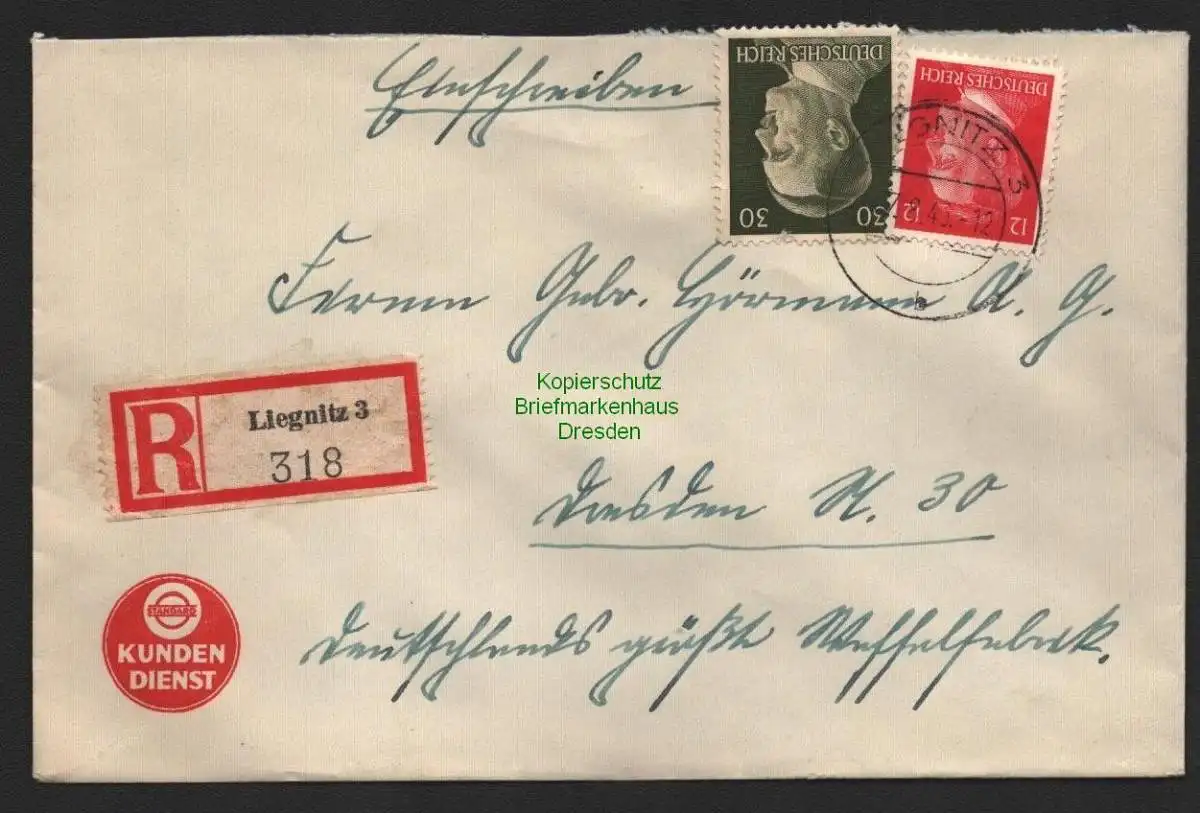 Einschreiben
DEUTSCHES REICH
30 30
DEUTSCHES REICH
12 12
GNITZ 3
.8.43.-12
b
Firma Gebr. Hörmann A. G.
Kopierschutz
Briefmarkenhaus
Dresden
R Liegnitz 3
318
Dresden N. 30
STANDARD
KUNDEN
DIENST
Deutschlands größte Waffelfabrik.